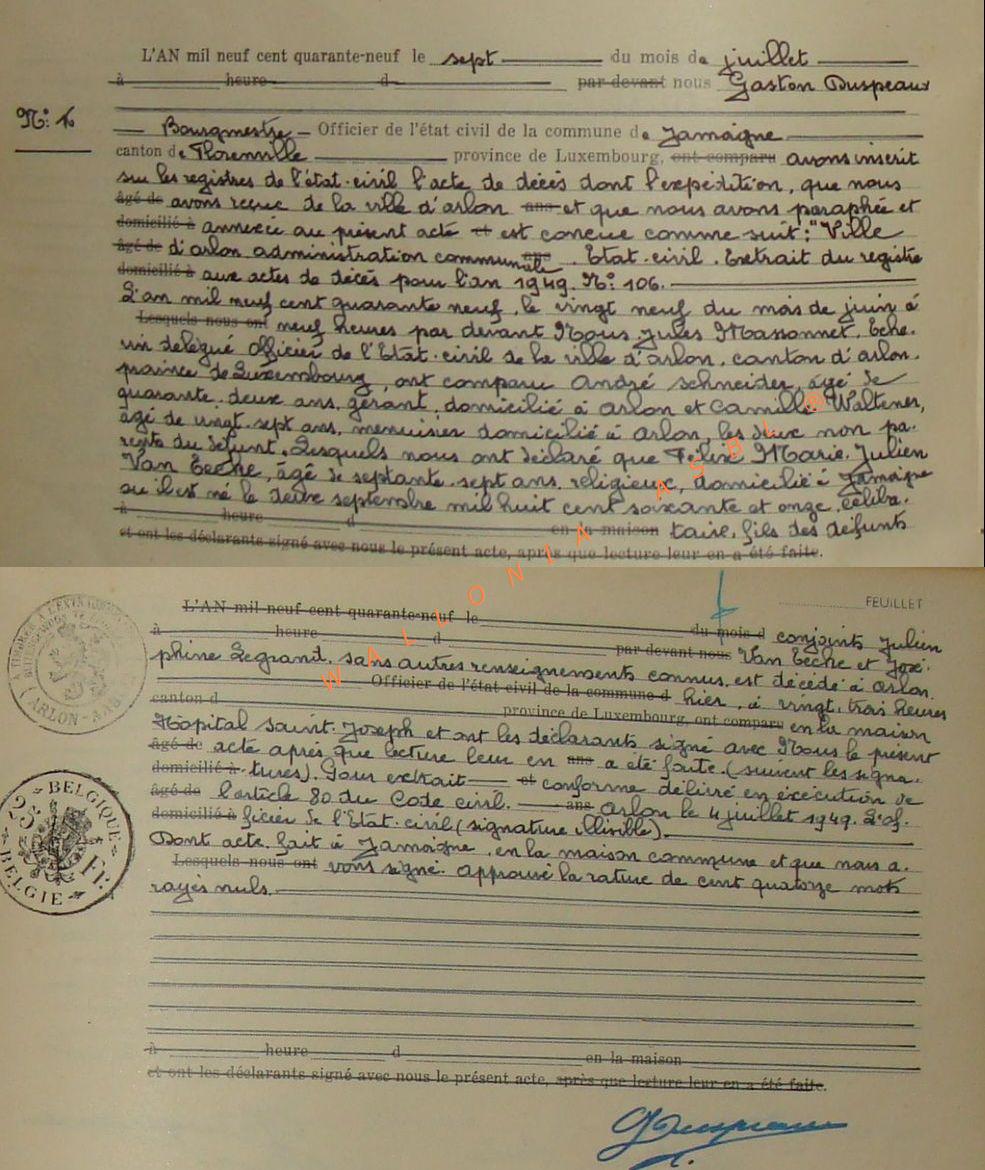 L'AN mil neuf cent quarante-neuf le sept du mois de juillet
à heure d par devant nous Gaston Duspeaux
N°: 6
Bourgmestre Officier de l'état civil de la commune de Jamoigne
canton de Florenville province de Luxembourg, ont comparu avons inscrit
sur les registres de l'état-civil l'acte de décès dont l'expédition, que nous
âgé de avons reçue de la ville d'arlon ans et que nous avons paraphée et
domicilié à annexée au présent acte et est concue comme suit: "Ville
âgé de d'arlon administration communale ans. Etat-civil. Extrait du registre
domicilié à aux actes de décès pour l'an 1949. N°: 106.
L'an mil neuf cent quarante neuf, le vingt neuf du mois de juin à
Lesquels nous ont neuf heures par devant Nous Jules Massonnet, Eche-
vin délégué Officier de l'Etat-civil de la ville d'arlon, canton d'arlon,
province de Luxembourg, ont comparu André Schneider, âgé de
quarante-deux ans, gérant, domicilié à Arlon et Camille Waltener,
âgé de vingt-sept ans, menuisier domicilié à Arlon, les deux non pa-
rents du défunt. Lesquels nous ont déclaré que Félix Marie Julien
Van Eecke, âgé de septante-sept ans, religieux, domicilié à Jamoigne
où il est né le deux septembre mil huit cent soixante et onze, céliba-
à heure d en la maison taire, fils des défunts
et ont les déclarants signé avec nous le présent acte, après que lecture leur en a été faite.
WALLONIA ASBL ®
FEUILLET
L'AN mil neuf cent quarante-neuf le du mois d conjoints Julien
à heure d par devant nous Van Eecke et José-
phine Legrand, sans autres renseignements connus, est décédé à Arlon,
Officier de l'état civil de la commune d hier, à vingt-trois heures
canton d province de Luxembourg, ont comparu en la maison
Hôpital Saint-Joseph et ont les déclarants signé avec Nous le présent
âgé de acte après que lecture leur en ans a été faite. (suivent les signa-
domicilié à tures). Pour extrait et conforme délivré en exécution de
âgé de l'article 80 du Code civil. ans Arlon le 4 juillet 1949. L'of-
domicilié à ficier de l'Etat-civil (signature illisible).
Dont acte, fait à Jamoigne, en la maison commune et que nous a-
Lesquels nous ont vons signé. Approuvé la rature de cent quatorze mots
rayés nuls.
ARLON
BELGIQUE
3 Fr.
BELGIE
à heure d en la maison
et ont les déclarants signé avec nous le présent acte, après que lecture leur en a été faite.
GDuspeaux